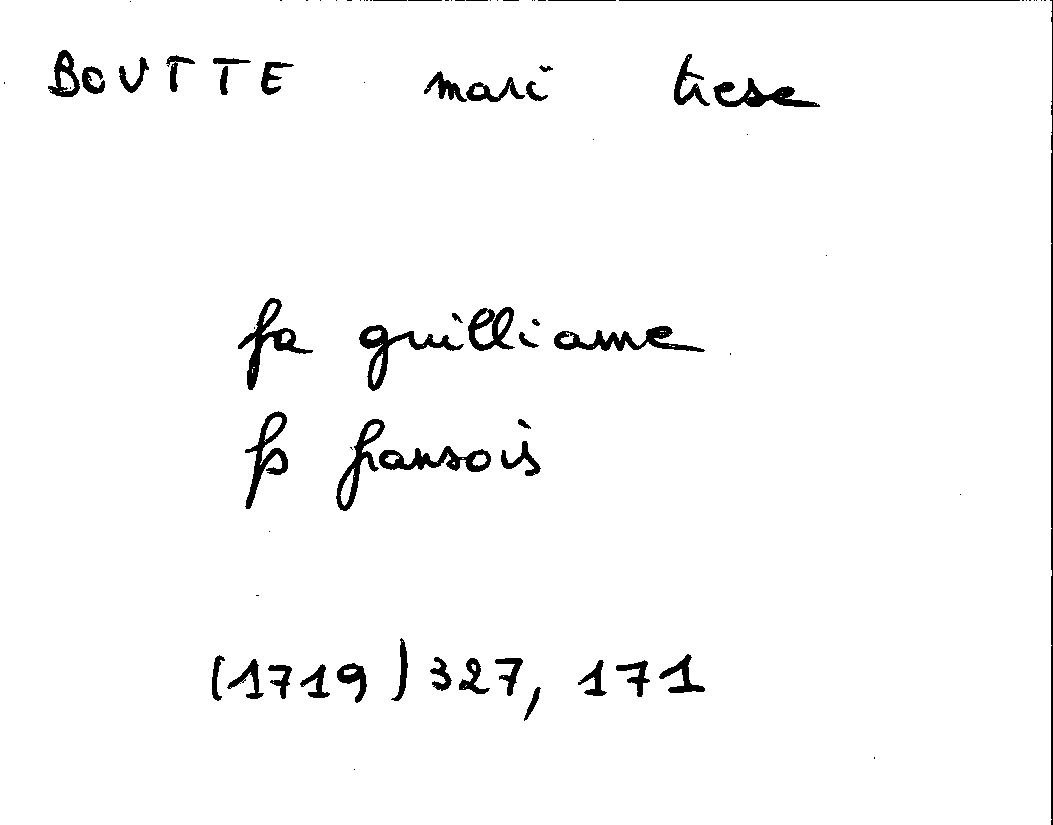 BOUTTE mari trese
fa guilliame
fs fransois
(1719) 327, 171